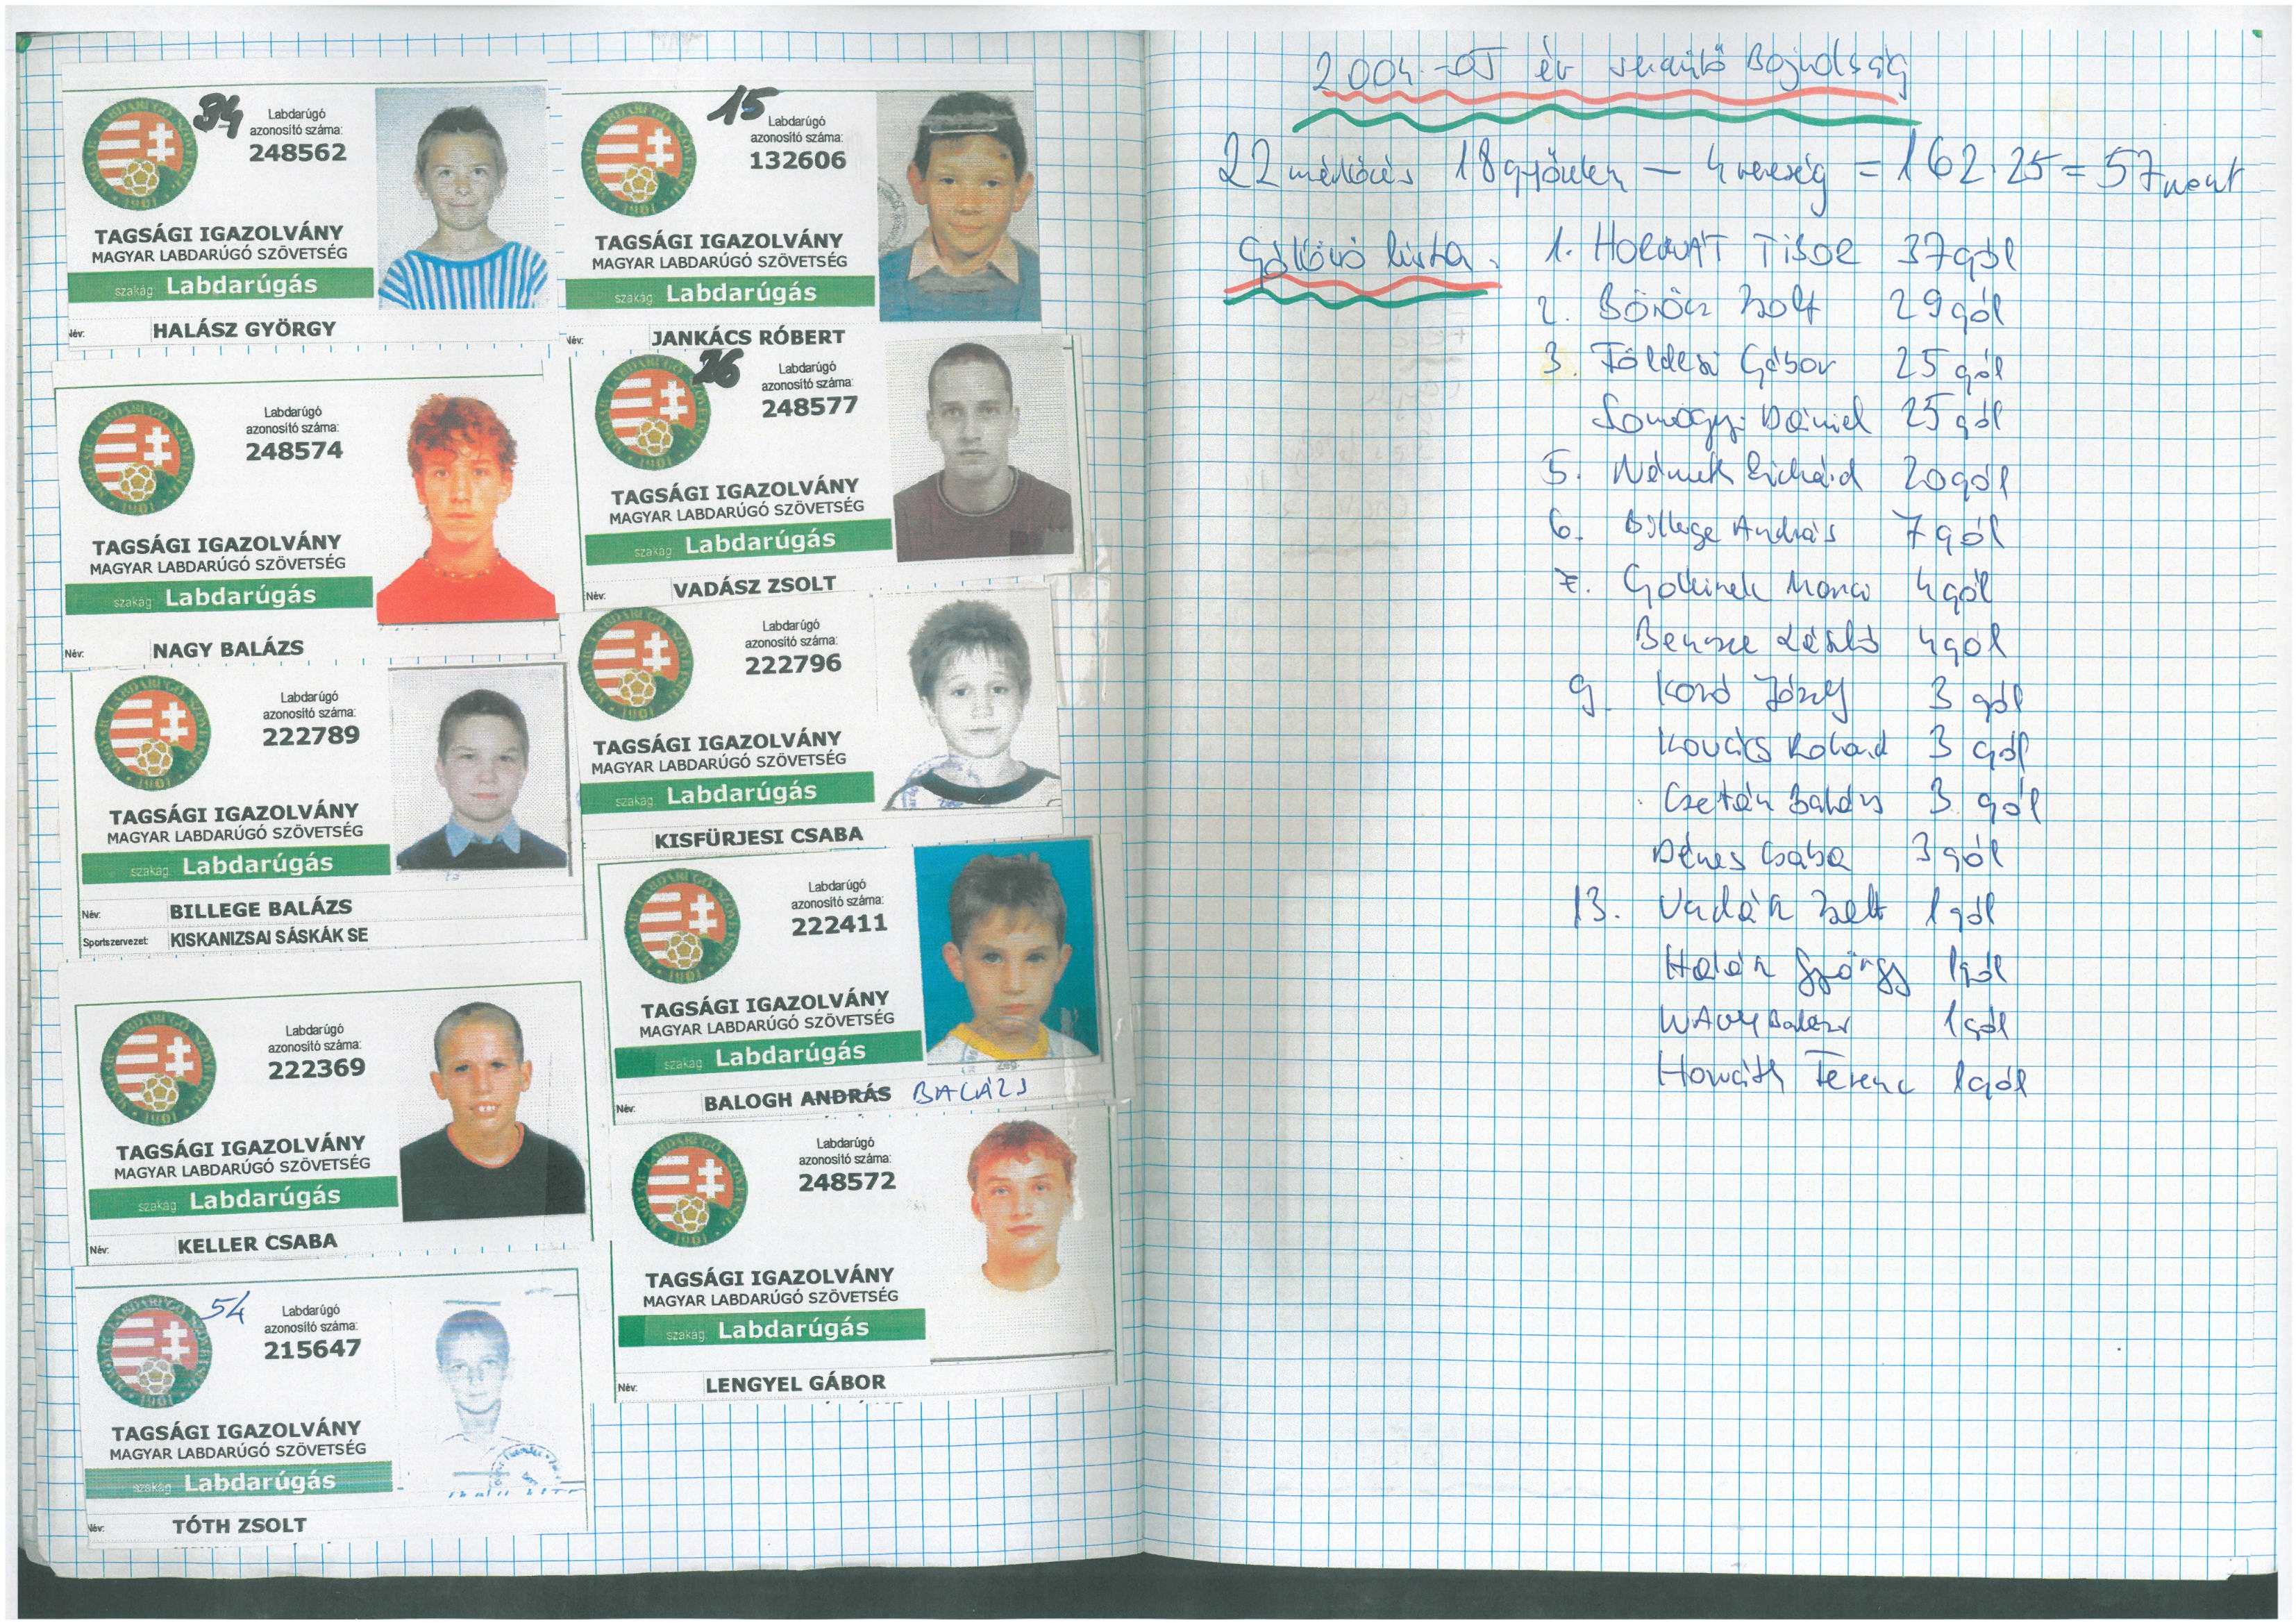 34
Labdarúgó
azonosító száma:
248562
TAGSÁGI IGAZOLVÁNY
MAGYAR LABDARÚGÓ SZÖVETSÉG
szakág Labdarúgás
Név: HALÁSZ GYÖRGY
15
Labdarúgó
azonosító száma:
132606
TAGSÁGI IGAZOLVÁNY
MAGYAR LABDARÚGÓ SZÖVETSÉG
szakág Labdarúgás
Név: JANKÁCS RÓBERT
Labdarúgó
azonosító száma:
248574
TAGSÁGI IGAZOLVÁNY
MAGYAR LABDARÚGÓ SZÖVETSÉG
szakág Labdarúgás
Név: NAGY BALÁZS
Labdarúgó
azonosító száma:
248577
TAGSÁGI IGAZOLVÁNY
MAGYAR LABDARÚGÓ SZÖVETSÉG
szakág Labdarúgás
Név: VADÁSZ ZSOLT
Labdarúgó
azonosító száma:
222789
TAGSÁGI IGAZOLVÁNY
MAGYAR LABDARÚGÓ SZÖVETSÉG
szakág Labdarúgás
Név: BILLEGE BALÁZS
Sportszervezet: KISKANIZSAI SÁSKÁK SE
Labdarúgó
azonosító száma:
222796
TAGSÁGI IGAZOLVÁNY
MAGYAR LABDARÚGÓ SZÖVETSÉG
szakág Labdarúgás
KISFÜRJESI CSABA
Labdarúgó
azonosító száma:
222369
TAGSÁGI IGAZOLVÁNY
MAGYAR LABDARÚGÓ SZÖVETSÉG
szakág Labdarúgás
Név: KELLER CSABA
Labdarúgó
azonosító száma:
222411
TAGSÁGI IGAZOLVÁNY
MAGYAR LABDARÚGÓ SZÖVETSÉG
szakág Labdarúgás
Név: BALOGH ANDRÁS BALÁZS
54
Labdarúgó
azonosító száma:
215647
TAGSÁGI IGAZOLVÁNY
MAGYAR LABDARÚGÓ SZÖVETSÉG
szakág Labdarúgás
Név: TÓTH ZSOLT
Labdarúgó
azonosító száma:
248572
TAGSÁGI IGAZOLVÁNY
MAGYAR LABDARÚGÓ SZÖVETSÉG
szakág Labdarúgás
Név: LENGYEL GÁBOR
2004-05 év serdülő Bajnokság
22 mérkőzés 18 győzelem – 4 vereség = 162.25 = 57 pont
Góllövő lista. 1. HORVÁT TIBOR 37 gól
2. Böröcz Zsolt 29 gól
3. Földesi Gábor 25 gól
Somogyi Dániel 25 gól
5. Németh Richárd 20 gól
6. Billege András 7 gól
7. Marci 4 gól
Bencze László 4 gól
9. József 3 gól
Kovács Roland 3 gól
Balázs 3 gól
Dénes Csaba 3 gól
13. Vadász Zsolt 1 gól
Halász György 1 gól
NAGY Balázs 1 gól
Horváth Ferenc 1 gól